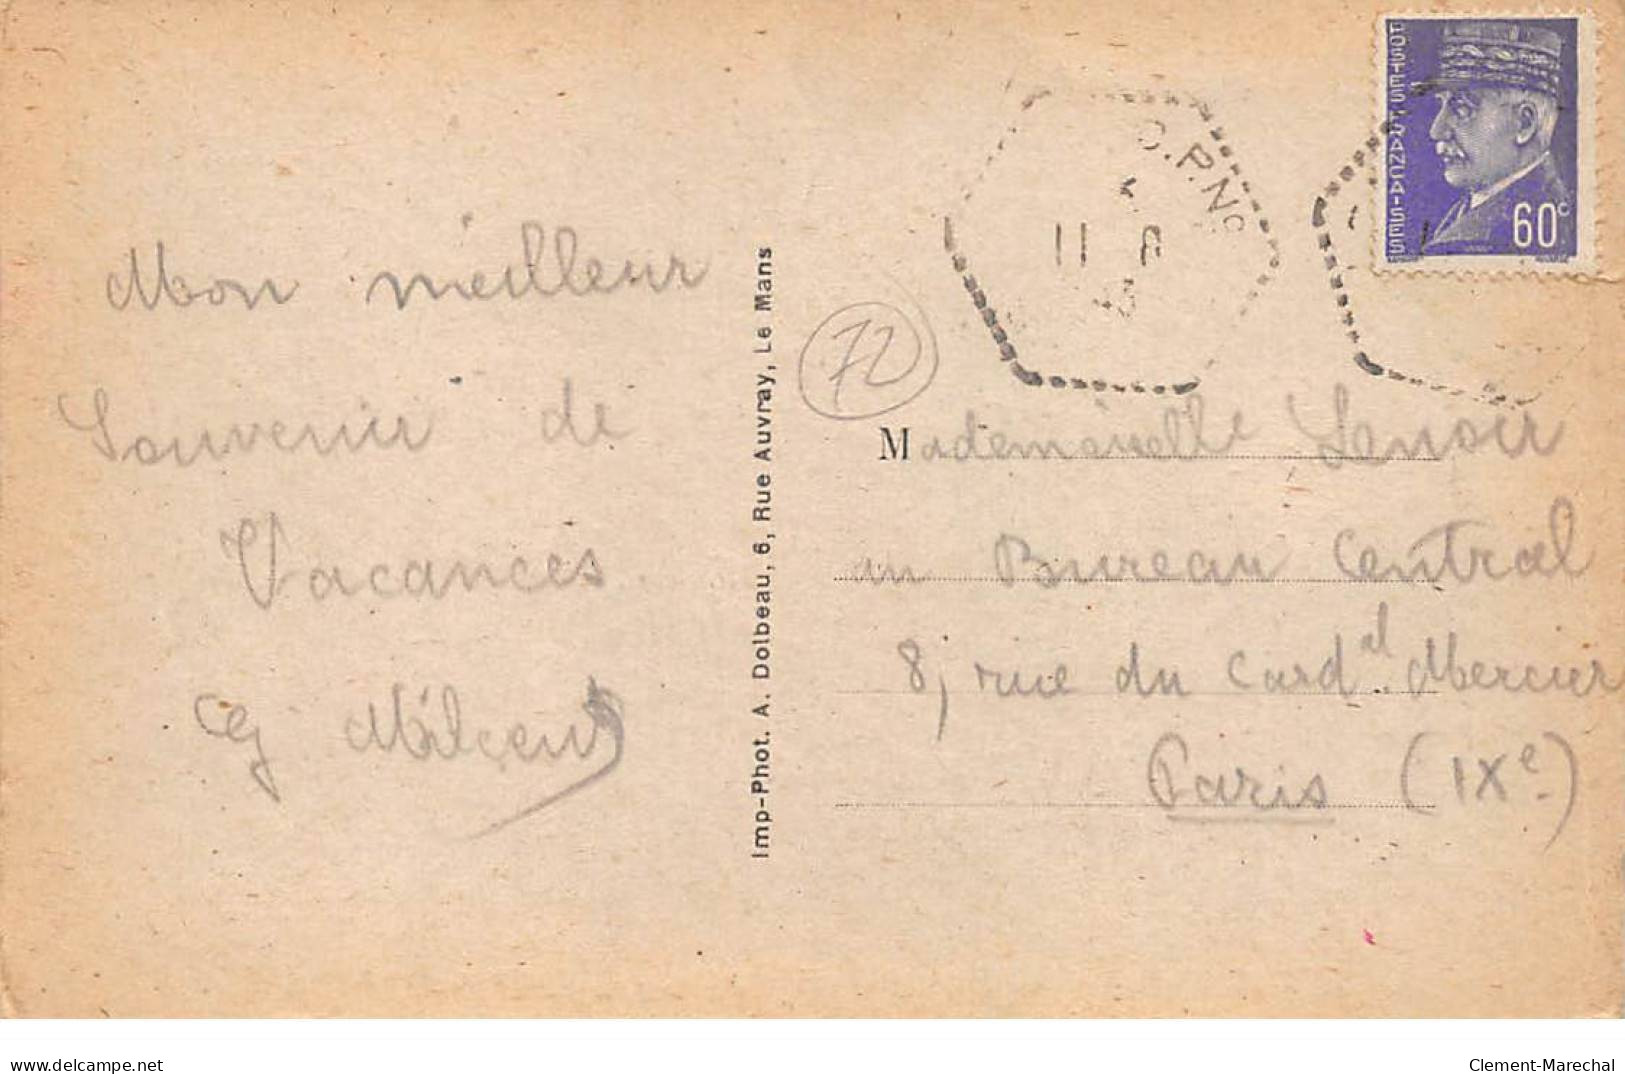 Mon meilleur
Souvenir de
Vacances
Imp-Phot. A. Dolbeau, 6, Rue Auvray, Le Mans
72
C.P.N°
11 8
43
POSTES FRANCAISES
60c
Mademoiselle Lenoir
au Bureau Central
8, rue du Cardal Mercier
Paris (IXe)
delcampe.net
Clement-Marechal